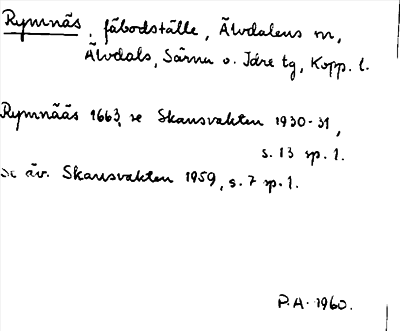 Rymnäs, fäbodställe, Älvdalens sn,
Älvdals, Särna o. Idre tg, Kopp. l.
Rymnääs 1663, se Skansvakten 1930-31,
s. 13 sp. 1.
Se äv. Skansvakten 1959, s. 7 sp. 1.
P.A. 1960.